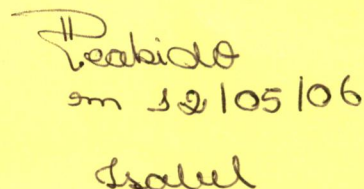 Recebido
em 12/05/06
Isabel